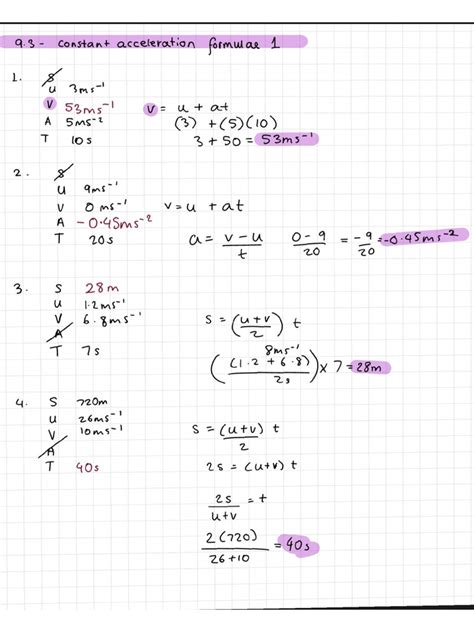 9.3 - Constant acceleration formulae 1
1. S
u 3ms⁻¹
V 53ms⁻¹ V = u + at
A 5ms⁻² (3) + (5)(10)
T 10s 3 + 50 = 53ms⁻¹
2. S
u 9ms⁻¹
V 0ms⁻¹ v = u + at
A -0.45ms⁻²
T 20s a = v-u/t 0-9/20 = -9/20 = -0.45ms⁻²
3. S 28m
u 1.2ms⁻¹
V 6.8ms⁻¹ s = (u+v/2) t
A 8ms⁻¹
T 7s ((1.2 + 6.8)/2s) x 7 = 28m
4. S 720m
u 26ms⁻¹
V 10ms⁻¹ s = (u+v)/2 t
A
T 40s 2s = (u+v) t
2s/u+v = t
2(720)/26+10 = 40s